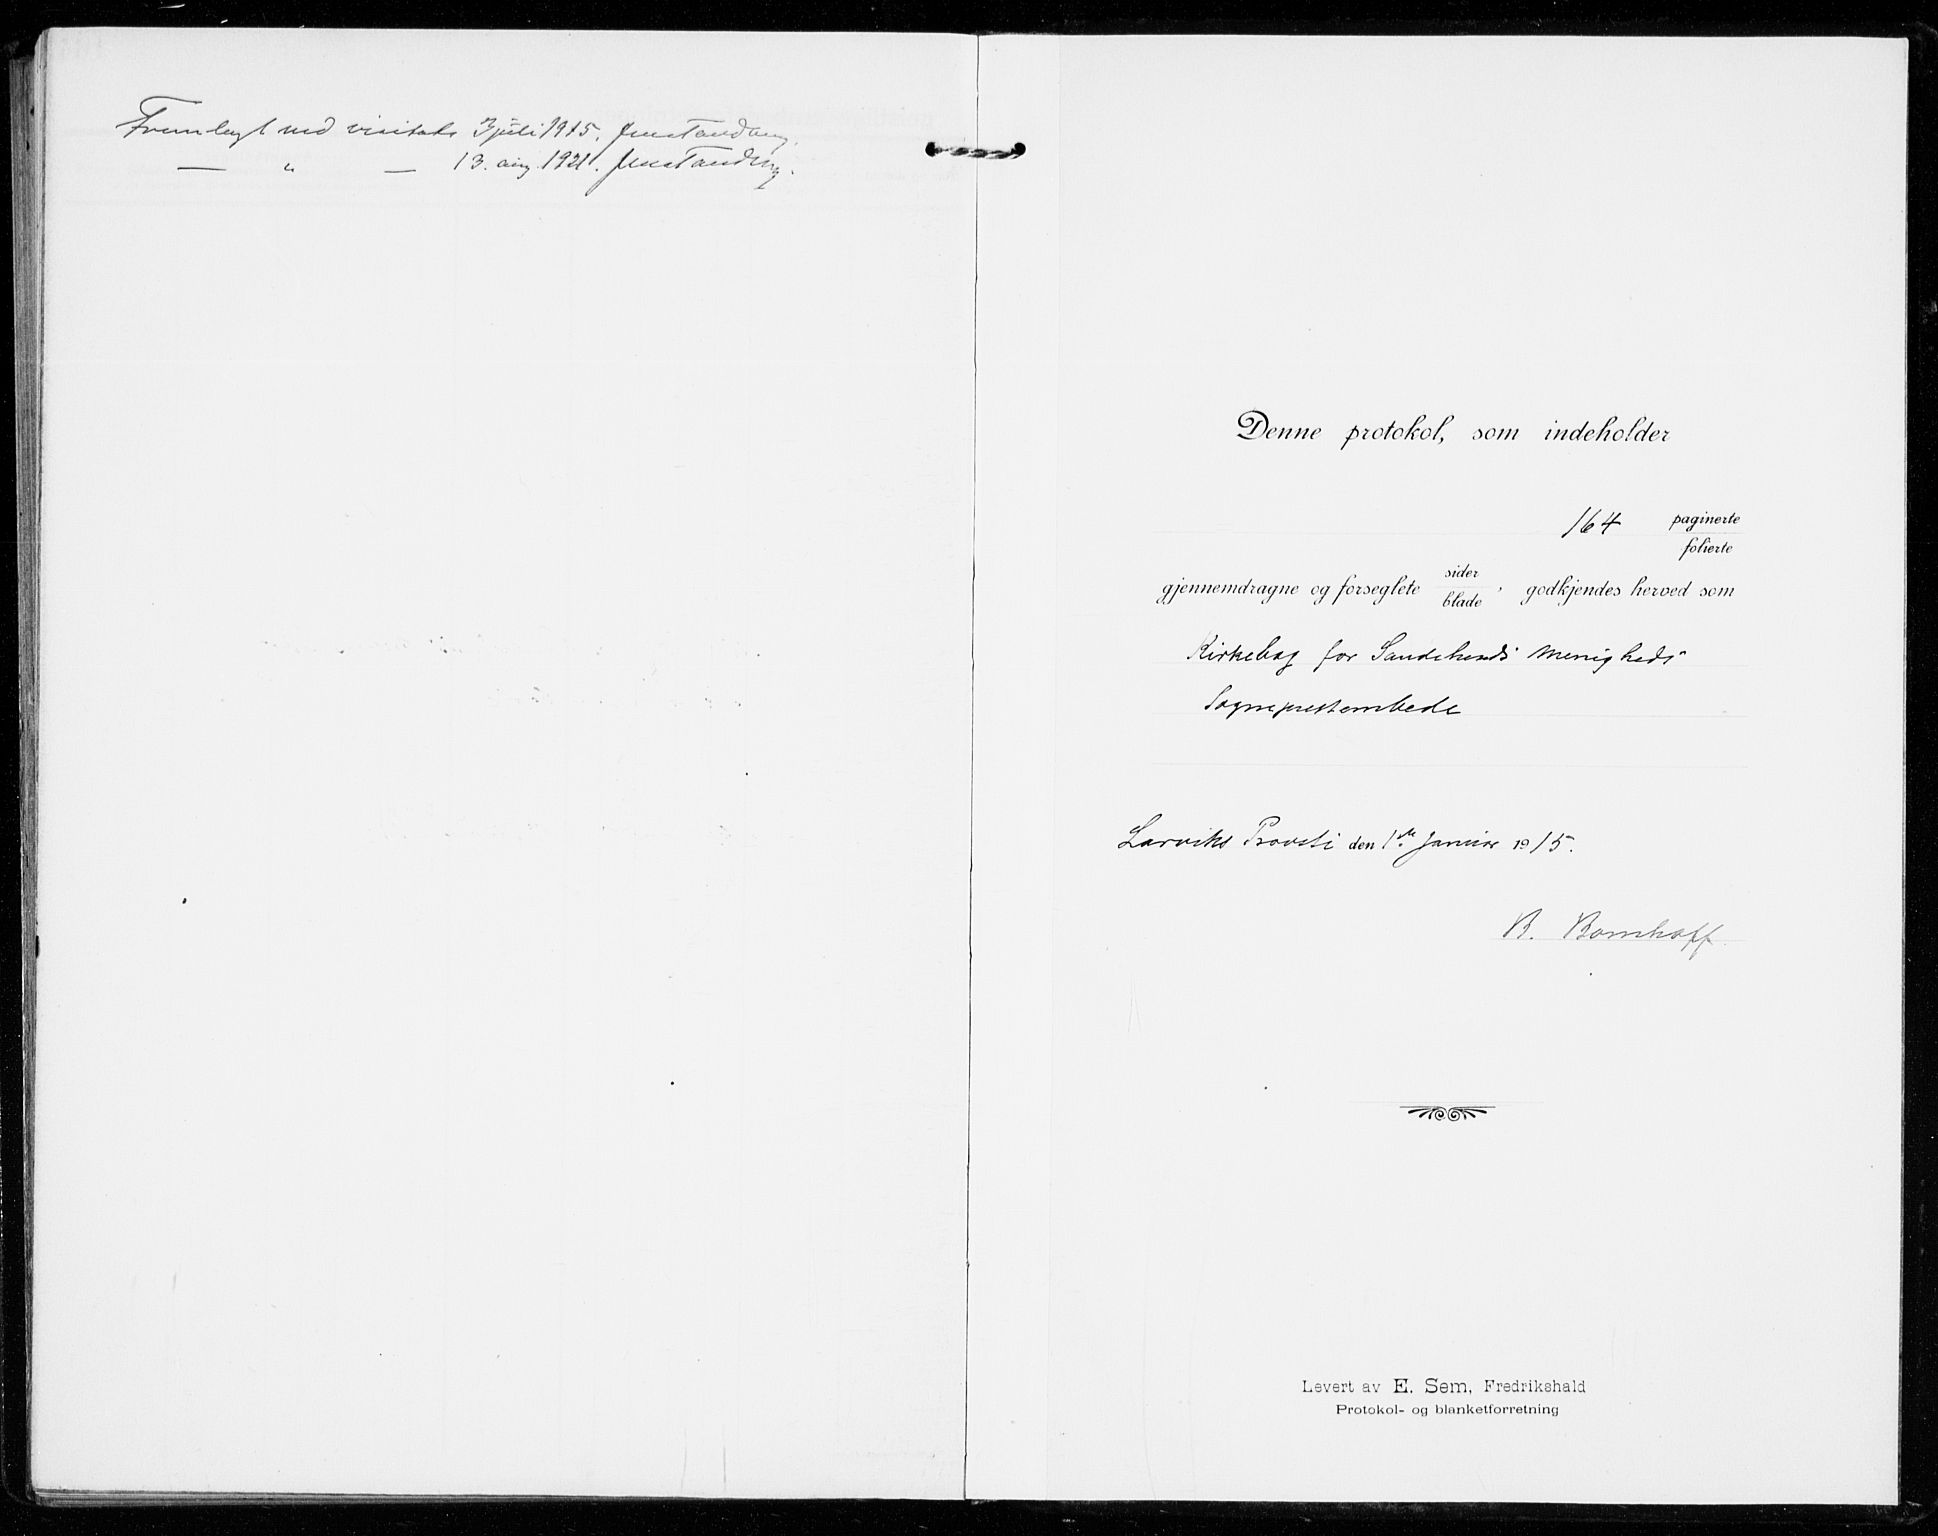 Fremlagt ved visitats 3 juli 1915. Jens Tandberg.
— " — 13. aug. 1921. Jens Tandberg.
Denne protokol, som indeholder
164 paginerte
folierte
gjennemdragne og forseglete sider
blade , godkjendes herved som
Kirkebog for Sandeherreds Menigheds
Sogneprestembede
Larviks Provsti den 1ste Januar 1915.
B. Bomhoff
Levert av E. Sem, Fredrikshald
Protokol- og blanketforretning